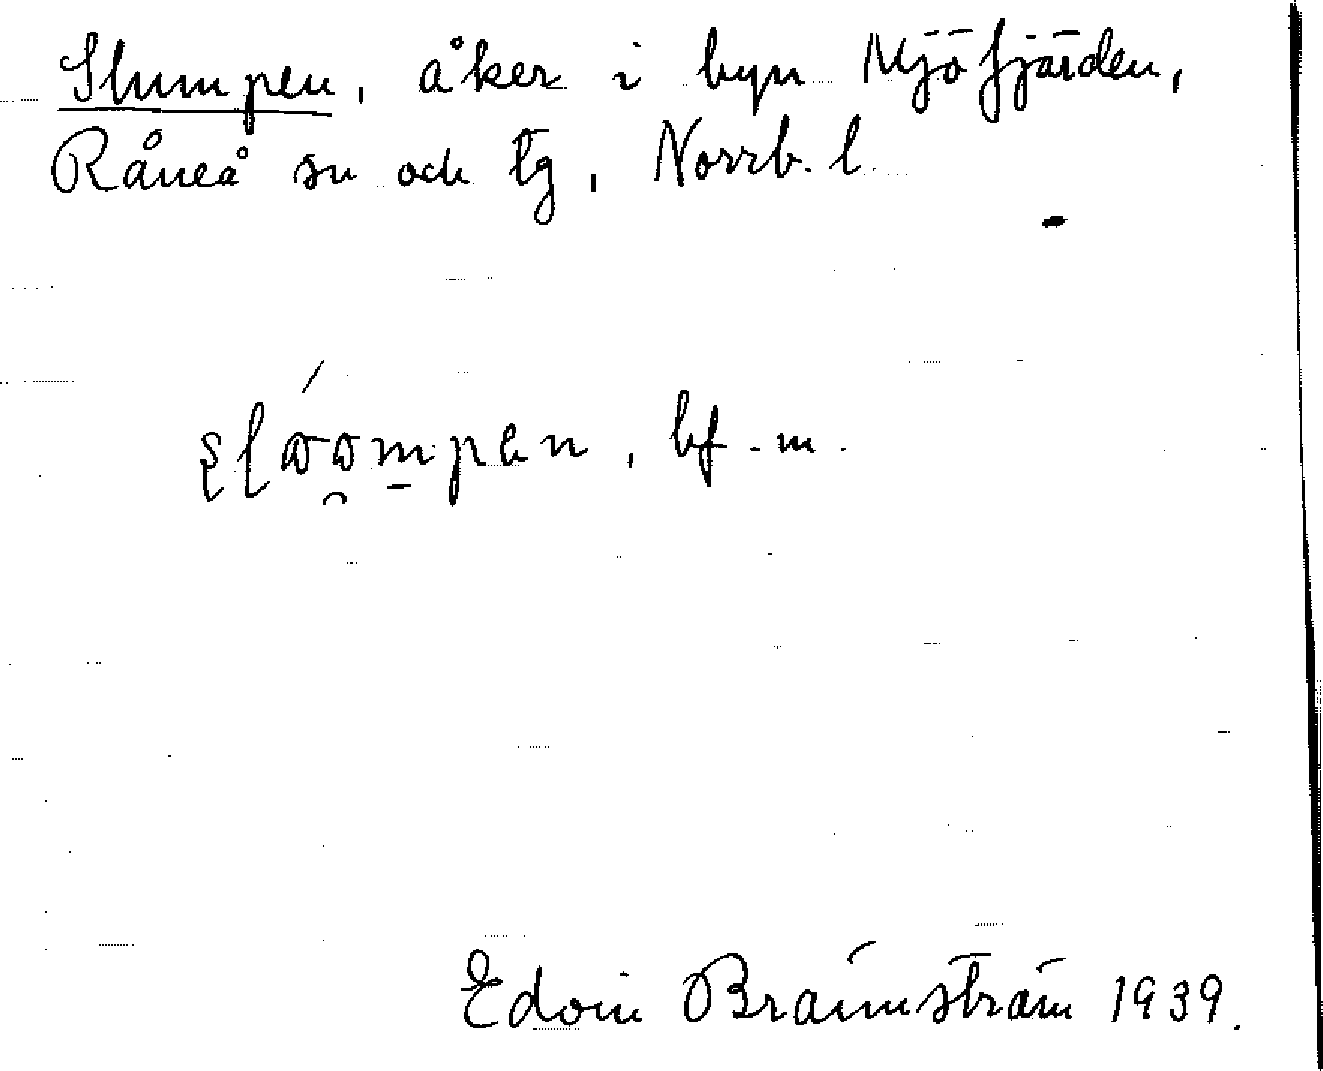 Slumpen, åker i byn Mjöfjärden,
Råneå sn och tg, Norrb. l.
bf. m.
Edvin Brännström 1939.